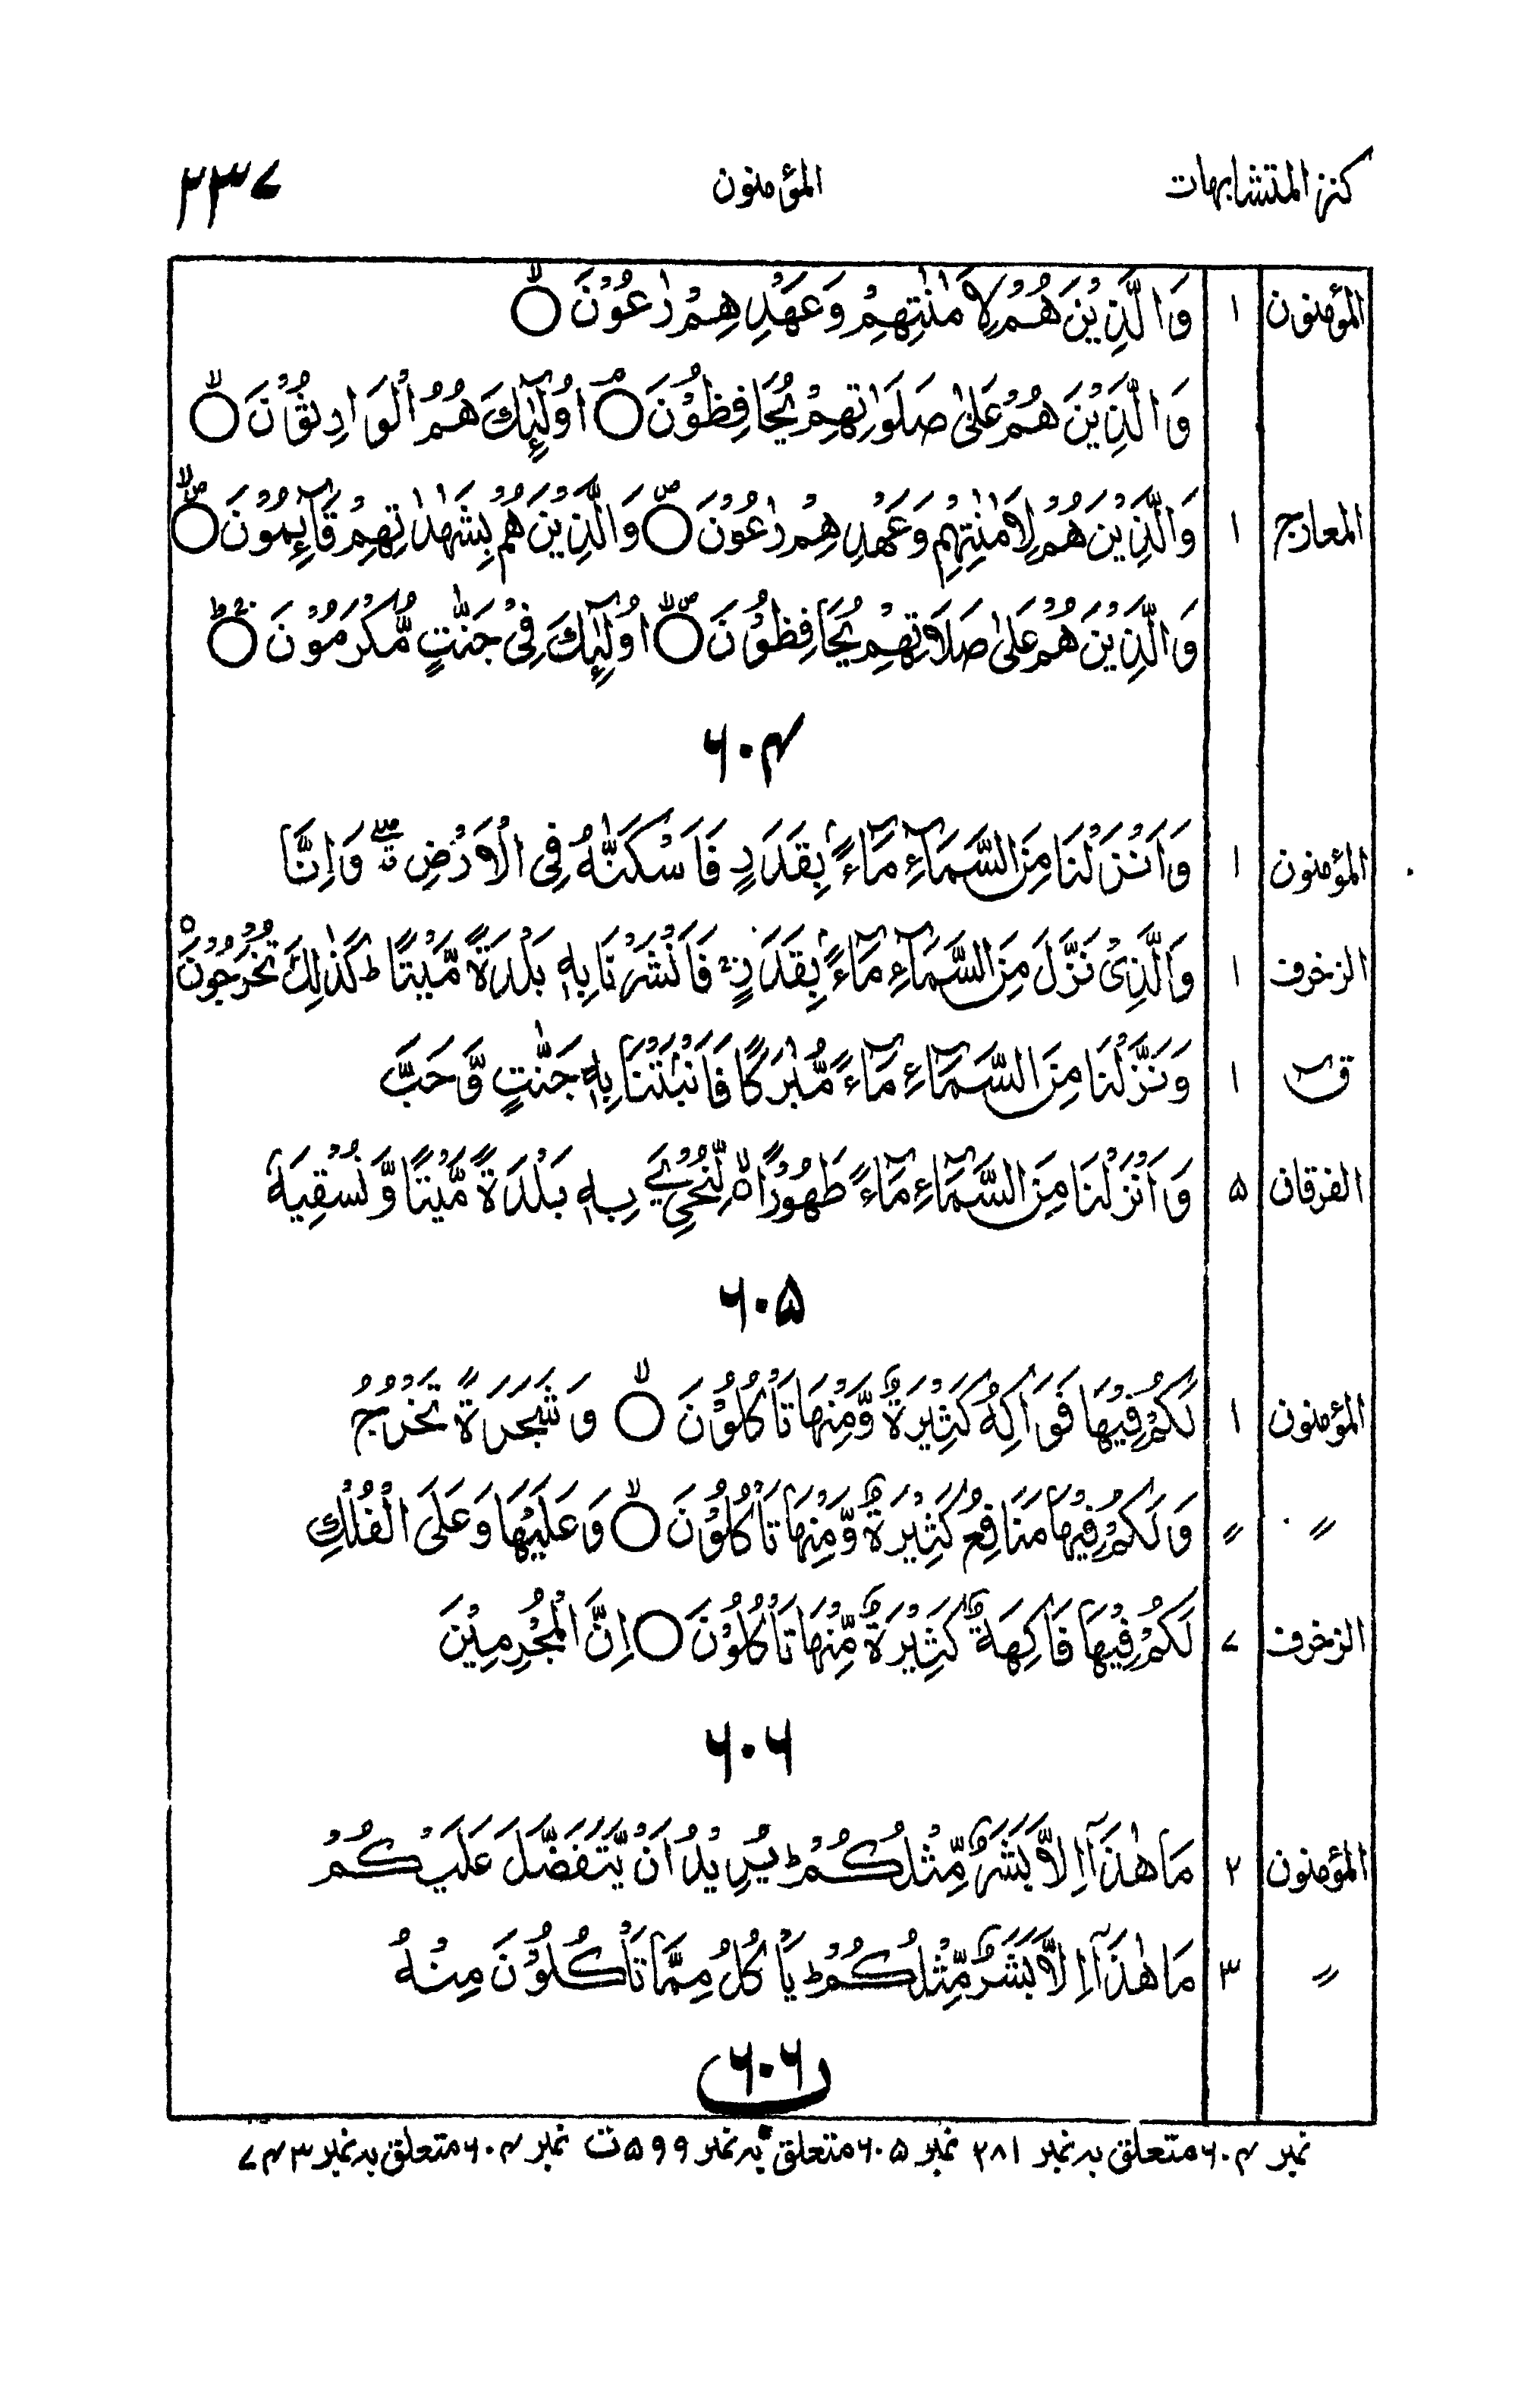 كنز المتشابهات المؤمنون ٢٣٧
المؤمنون ١ وَالَّذِيْنَ هُمْ لِاَمٰنٰتِهِمْ وَعَهْدِهِمْ رٰعُوْنَ ○ۙ
وَالَّذِيْنَ هُمْ عَلٰى صَلَوٰتِهِمْ يُحَافِظُوْنَ ○ۘ اُولٰٓئِكَ هُمُ الْوَارِثُوْنَ ○ۙ
المعارج ١ وَالَّذِيْنَ هُمْ لِاَمٰنٰتِهِمْ وَعَهْدِهِمْ رٰعُوْنَ ○ۖ وَالَّذِيْنَ هُمْ بِشَهٰدٰتِهِمْ قَآئِمُوْنَ ○ۙۖ
وَالَّذِيْنَ هُمْ عَلٰى صَلَاتِهِمْ يُحَافِظُوْنَ ○ۙۖ اُولٰٓئِكَ فِىْ جَنّٰتٍ مُّكْرَمُوْنَ ○ؕ
۶۰۴
المؤمنون ١ وَاَنْزَلْنَا مِنَ السَّمَآءِ مَآءًۢ بِقَدَرٍ فَاَسْكَنّٰهُ فِى الْاَرْضِ ۖۗ وَاِنَّا
الزخرف ١ وَالَّذِىْ نَزَّلَ مِنَ السَّمَآءِ مَآءًۢ بِقَدَرٍ ۚ فَاَنْشَرْنَا بِهٖ بَلْدَةً مَّيْتًا ؕ كَذٰلِكَ تُخْرَجُوْنَ ○
ق ١ وَنَزَّلْنَا مِنَ السَّمَآءِ مَآءً مُّبٰرَكًا فَاَنْۢبَتْنَا بِهٖ جَنّٰتٍ وَّحَبَّ
الفرقان ۵ وَاَنْزَلْنَا مِنَ السَّمَآءِ مَآءً طَهُوْرًا ○ۙ لِّنُحْیِۦَ بِهٖ بَلْدَةً مَّيْتًا وَّنُسْقِيَهٗ
۶۰۵
المؤمنون ١ لَكُمْ فِيْهَا فَوَاكِهُ كَثِيْرَةٌ وَّمِنْهَا تَاْكُلُوْنَ ○ۙ وَشَجَرَةً تَخْرُجُ
〃 〃 وَلَكُمْ فِيْهَا مَنَافِعُ كَثِيْرَةٌ وَّمِنْهَا تَاْكُلُوْنَ ○ۙ وَعَلَيْهَا وَعَلَى الْفُلْكِ
الزخرف ٧ لَكُمْ فِيْهَا فَاكِهَةٌ كَثِيْرَةٌ مِّنْهَا تَاْكُلُوْنَ ○ اِنَّ الْمُجْرِمِيْنَ
۶۰۶
المؤمنون ٢ مَا هٰذَآ اِلَّا بَشَرٌ مِّثْلُكُمْ ؕ يُرِيْدُ اَنْ يَّتَفَضَّلَ عَلَيْكُمْ
〃 ٣ مَا هٰذَآ اِلَّا بَشَرٌ مِّثْلُكُمْ ؕ يَاْكُلُ مِمَّا تَاْكُلُوْنَ مِنْهُ
۶۰۶ ت
نمبر ۶۰۴ متعلق بہ نمبر ۲۸۱ نمبر ۶۰۵ متعلق بہ نمبر ۵۹۹ ت نمبر ۶۰۴ متعلق بہ نمبر ۷۴۳